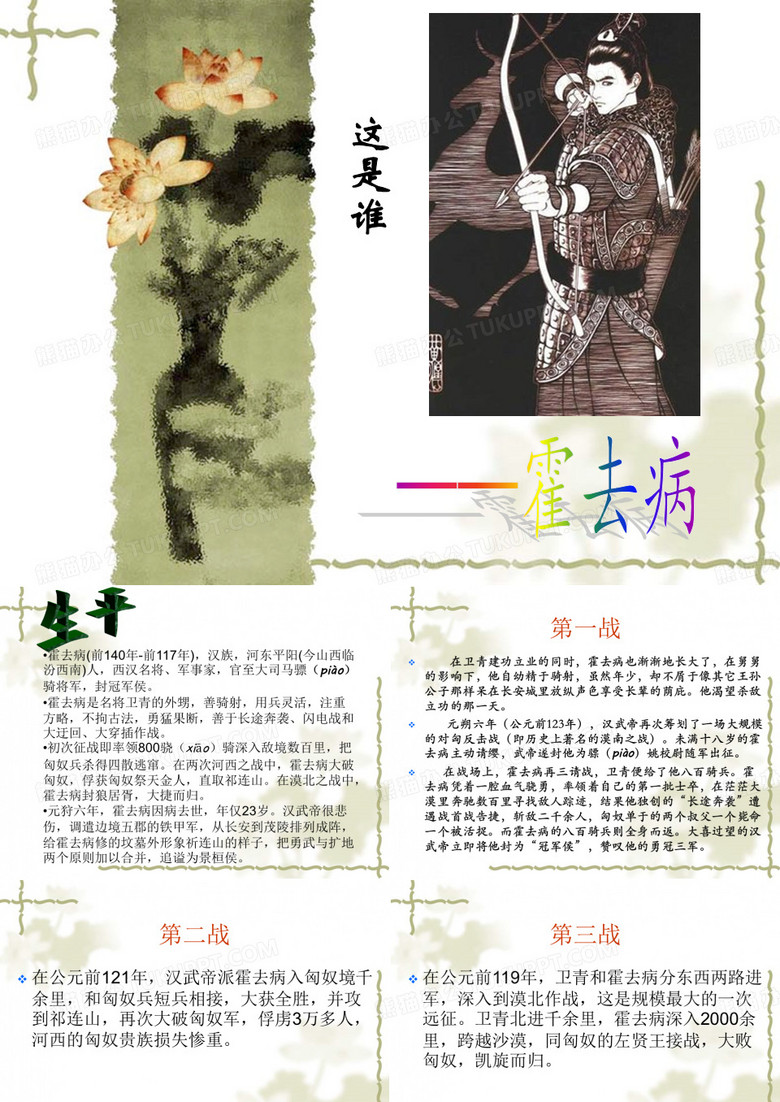 这是谁
——霍去病
生平
•霍去病(前140年-前117年)，汉族，河东平阳(今山西临
汾西南)人，西汉名将、军事家，官至大司马骠(piào)
骑将军，封冠军侯。
•霍去病是名将卫青的外甥，善骑射，用兵灵活，注重
方略，不拘古法，勇猛果断，善于长途奔袭、闪电战和
大迂回、大穿插作战。
•初次征战即率领800骁（xiāo）骑深入敌境数百里，把
匈奴兵杀得四散逃窜。在两次河西之战中，霍去病大破
匈奴，俘获匈奴祭天金人，直取祁连山。在漠北之战中，
霍去病封狼居胥，大捷而归。
•元狩六年，霍去病因病去世，年仅23岁。汉武帝很悲
伤，调遣边境五郡的铁甲军，从长安到茂陵排列成阵，
给霍去病修的坟墓外形象祈连山的样子，把勇武与扩地
两个原则加以合并，追谥为景桓侯。
第一战
在卫青建功立业的同时，霍去病也渐渐地长大了，在舅舅
的影响下，他自幼精于骑射，虽然年少，却不屑于像其它王孙
公子那样呆在长安城里放纵声色享受长辈的荫庇。他渴望杀敌
立功的那一天。
元朔六年（公元前123年），汉武帝再次筹划了一场大规模
的对匈反击战（即历史上著名的漠南之战）。未满十八岁的霍
去病主动请缨，武帝遂封他为骠（piào）姚校尉随军出征。
在战场上，霍去病再三请战，卫青便给了他八百骑兵。霍
去病凭着一腔血气骁勇，率领着自己的第一批士卒，在茫茫大
漠里奔驰数百里寻找敌人踪迹，结果他独创的“长途奔袭”遭
遇战首战告捷，斩敌二千余人，匈奴单于的两个叔父一个毙命
一个被活捉。而霍去病的八百骑兵则全身而返。大喜过望的汉
武帝立即将他封为“冠军侯”，赞叹他的勇冠三军。
第二战
在公元前121年，汉武帝派霍去病入匈奴境千
余里，和匈奴兵短兵相接，大获全胜，并攻
到祁连山，再次大破匈奴军，俘虏3万多人，
河西的匈奴贵族损失惨重。
第三战
在公元前119年，卫青和霍去病分东西两路进
军，深入到漠北作战，这是规模最大的一次
远征。卫青北进千余里，霍去病深入2000余
里，跨越沙漠，同匈奴的左贤王接战，大败
匈奴，凯旋而归。